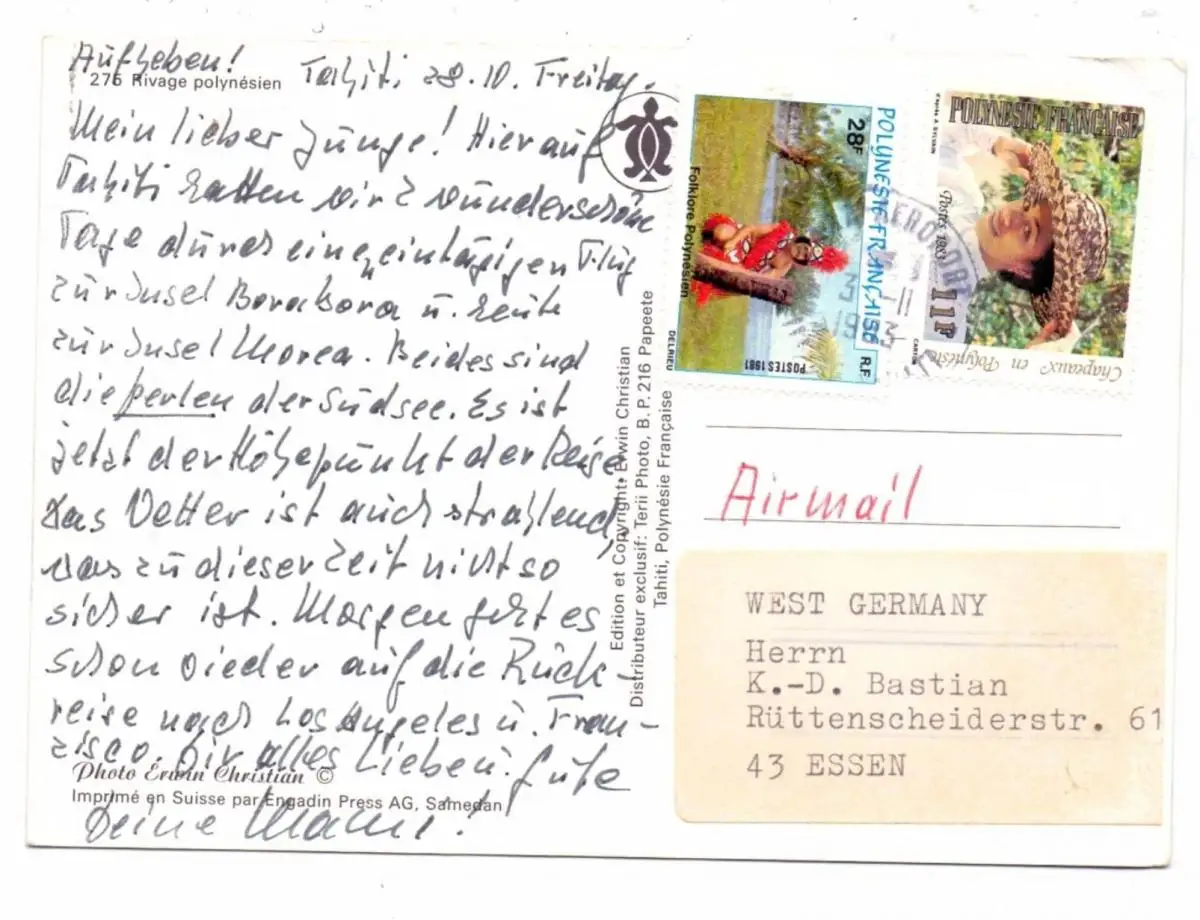 Aufheben!
275 Rivage polynésien
Tahiti 28.10. Freitag.
Mein lieber Junge! Hier auf
Tahiti hatten wir 2 wunderschöne
Tage durch einen eintägigen Flug
zur Insel Borabora u. heute
zur Insel Morea. Beides sind
die Perlen der Südsee. Es ist
jetzt der Höhepunkt der Reise.
Das Wetter ist auch strahlend,
was zu dieser Zeit nicht so
sicher ist. Morgen geht es
schon wieder auf die Rück-
reise nach Los Angeles u. Fran-
zisco. Dir alles Lieben. Gute
Deine Mami!
Photo Erwin Christian ©
Imprimé en Suisse par Engadin Press AG, Samedan
Edition et Copyright: Erwin Christian
Distributeur exclusif: Terii Photo, B.P. 216 Papeete
Tahiti, Polynésie Française
POLYNESIE FRANÇAISE
28F
Folklore Polynésien
POSTES 1981
R.F
DELRIEU
POLYNÉSIE FRANÇAISE
d'après A. SYLVAIN
Postes 1983
11F
CARTOR
Chapeaux en Polynésie
Airmail
WEST GERMANY
Herrn
K.-D. Bastian
Rüttenscheiderstr. 61
43 ESSEN